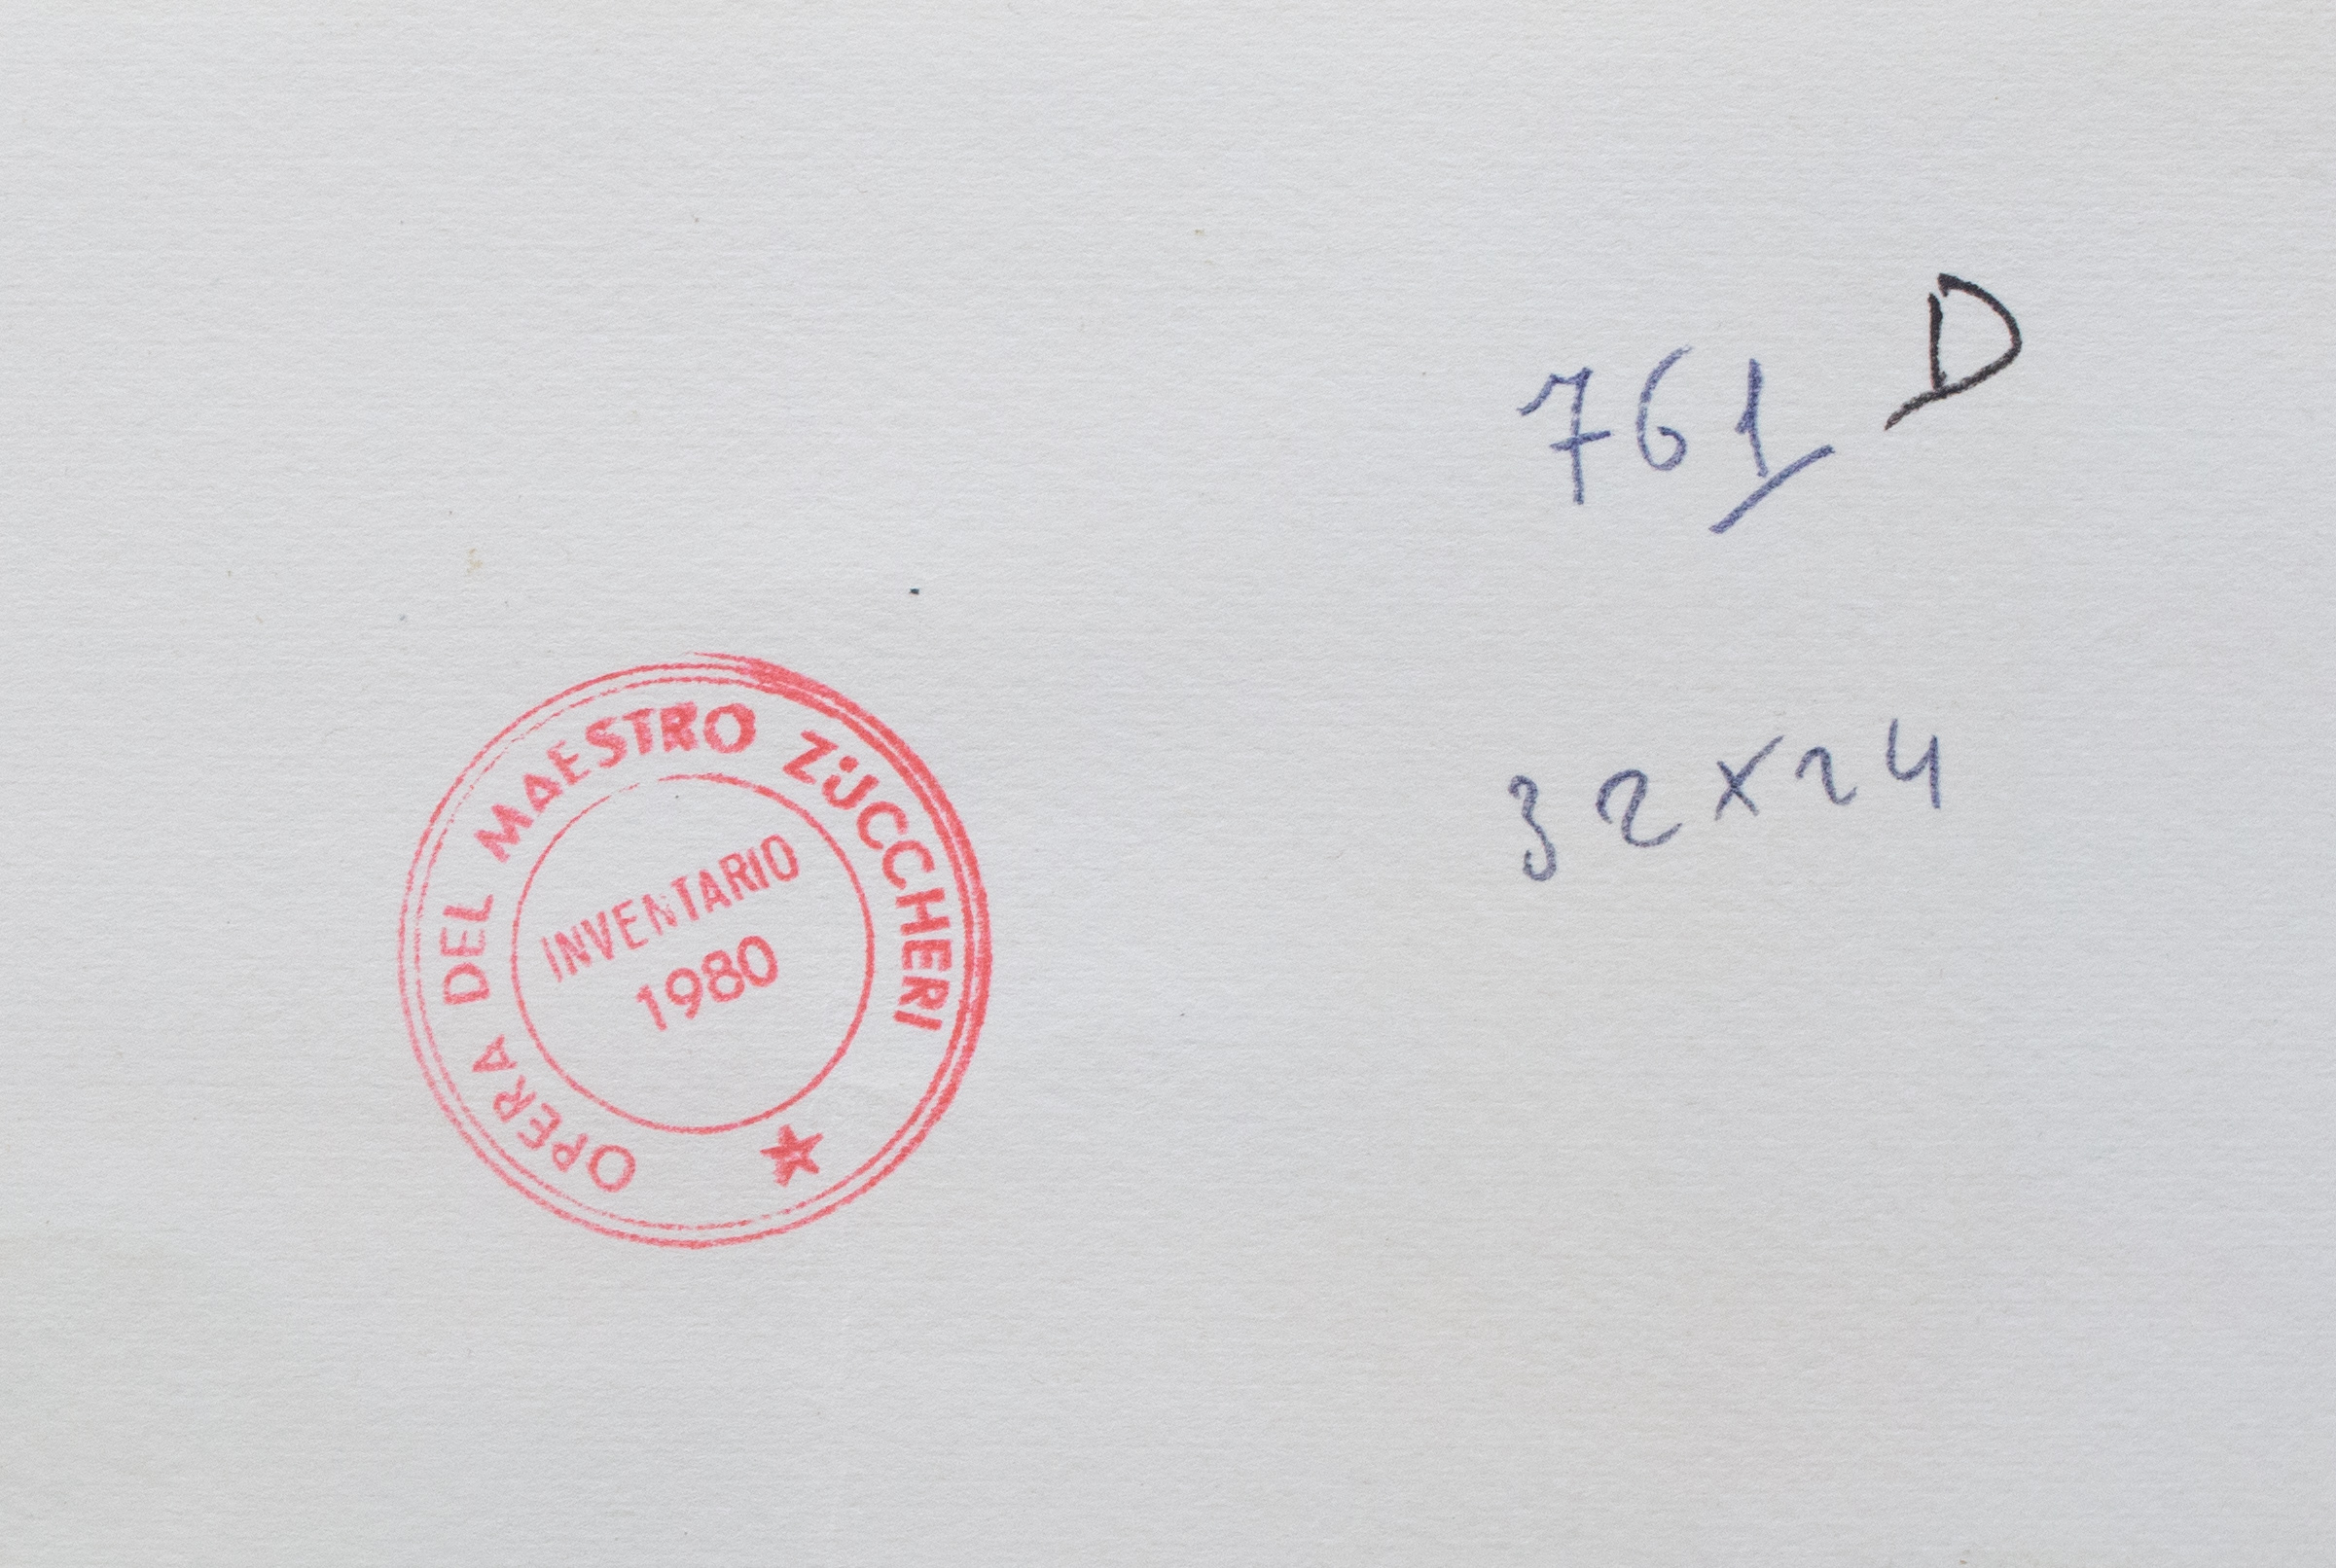 761 D
32x24
OPERA DEL MAESTRO ZÜCCHERI
INVENTARIO
1980